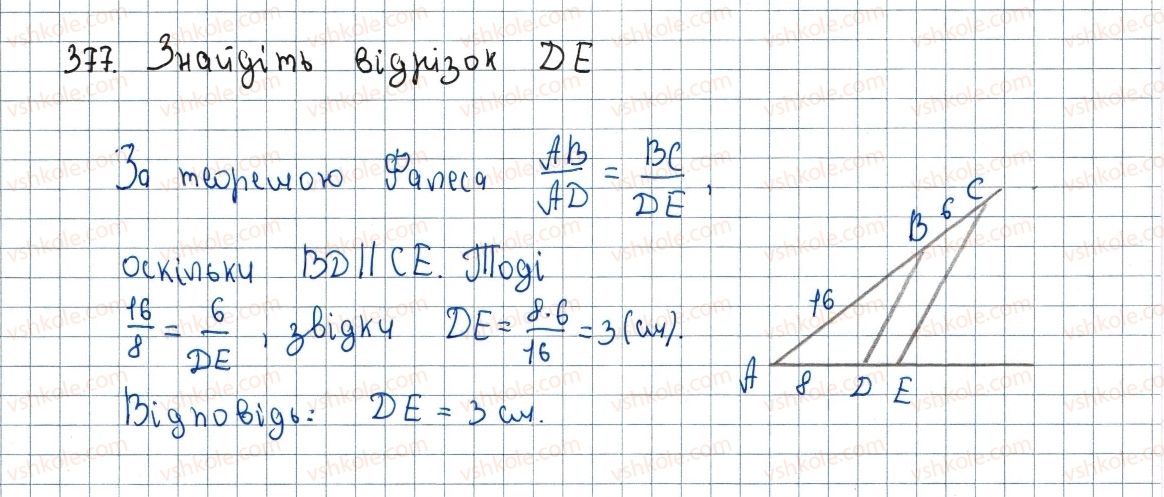 377. Знайдіть відрізок DE
За теоремою Фалеса AB/AD = BC/DE,
оскільки BD || CE. Тоді
16/8 = 6/DE, звідки DE = 8·6/16 = 3 (см).
Відповідь: DE = 3 см.
A 16 B 6 C
8 D E
vshkole.com